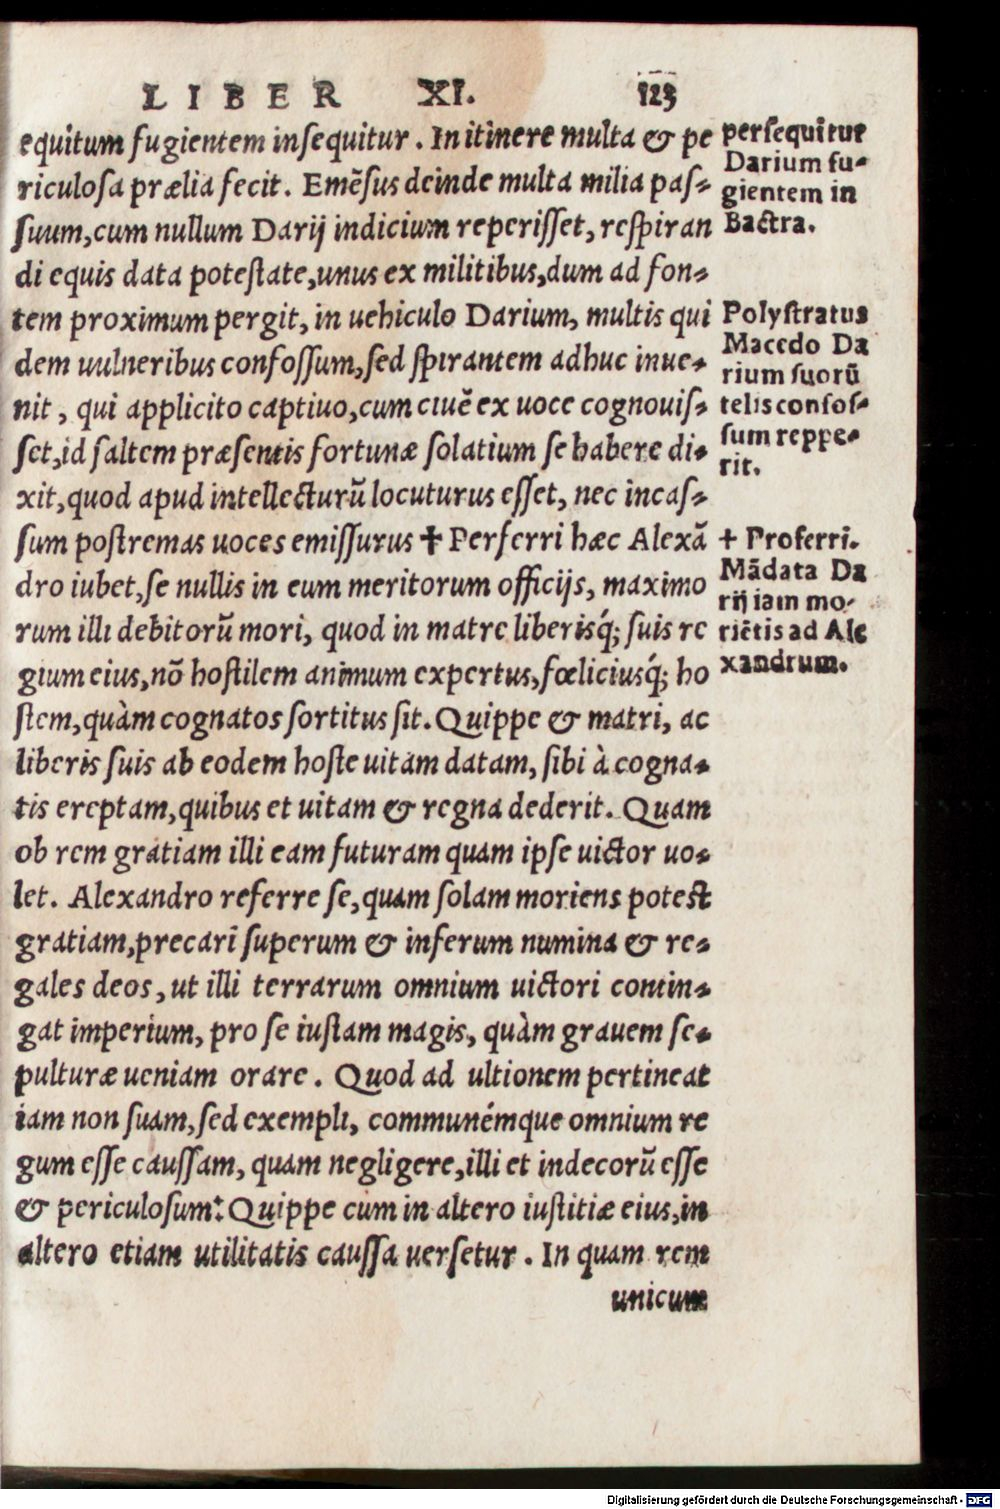 LIBER XI. 123
equitum fugientem insequitur. In itinere multa & pe
riculosa prælia fecit. Emẽsus deinde multa milia pas-
suum, cum nullum Darij indicium reperisset, respiran
di equis data potestate, unus ex militibus, dum ad fon-
tem proximum pergit, in uehiculo Darium, multis qui
dem uulneribus confossum, sed spirantem adhuc inue-
nit, qui applicito captiuo, cum ciuẽ ex uoce cognouis-
set, id saltem præsentis fortunæ solatium se habere di-
xit, quod apud intellecturũ locuturus esset, nec incas-
sum postremas uoces emissurus ✝ Perferri hæc Alexã
dro iubet, se nullis in eum meritorum officijs, maximo
rum illi debitorũ mori, quod in matre liberisq́; suis re
gium eius, nõ hostilem animum expertus, fœliciusq́; ho
stem, quàm cognatos sortitus sit. Quippe & matri, ac
liberis suis ab eodem hoste uitam datam, sibi à cogna-
tis ereptam, quibus et uitam & regna dederit. Quam
ob rem gratiam illi eam futuram quam ipse uictor uo-
let. Alexandro referre se, quam solam moriens potest
gratiam, precari superum & inferum numina & re-
gales deos, ut illi terrarum omnium uictori contin-
gat imperium, pro se iustam magis, quàm grauem se-
pulturæ ueniam orare. Quod ad ultionem pertineat
iam non suam, sed exempli, communémque omnium re
gum esse caussam, quam negligere, illi et indecorũ esse
& periculosum: Quippe cum in altero iustitiæ eius, in
altero etiam utilitatis caussa uersetur. In quam rem
unicum
persequitur
Darium fu-
gientem in
Bactra.
Polystratus
Macedo Da
rium suorũ
telis confos-
sum reppe-
rit.
✝ Proferri.
Mãdata Da
rij iam mo-
riẽtis ad Ale
xandrum.
Digitalisierung gefördert durch die Deutsche Forschungsgemeinschaft - DFG